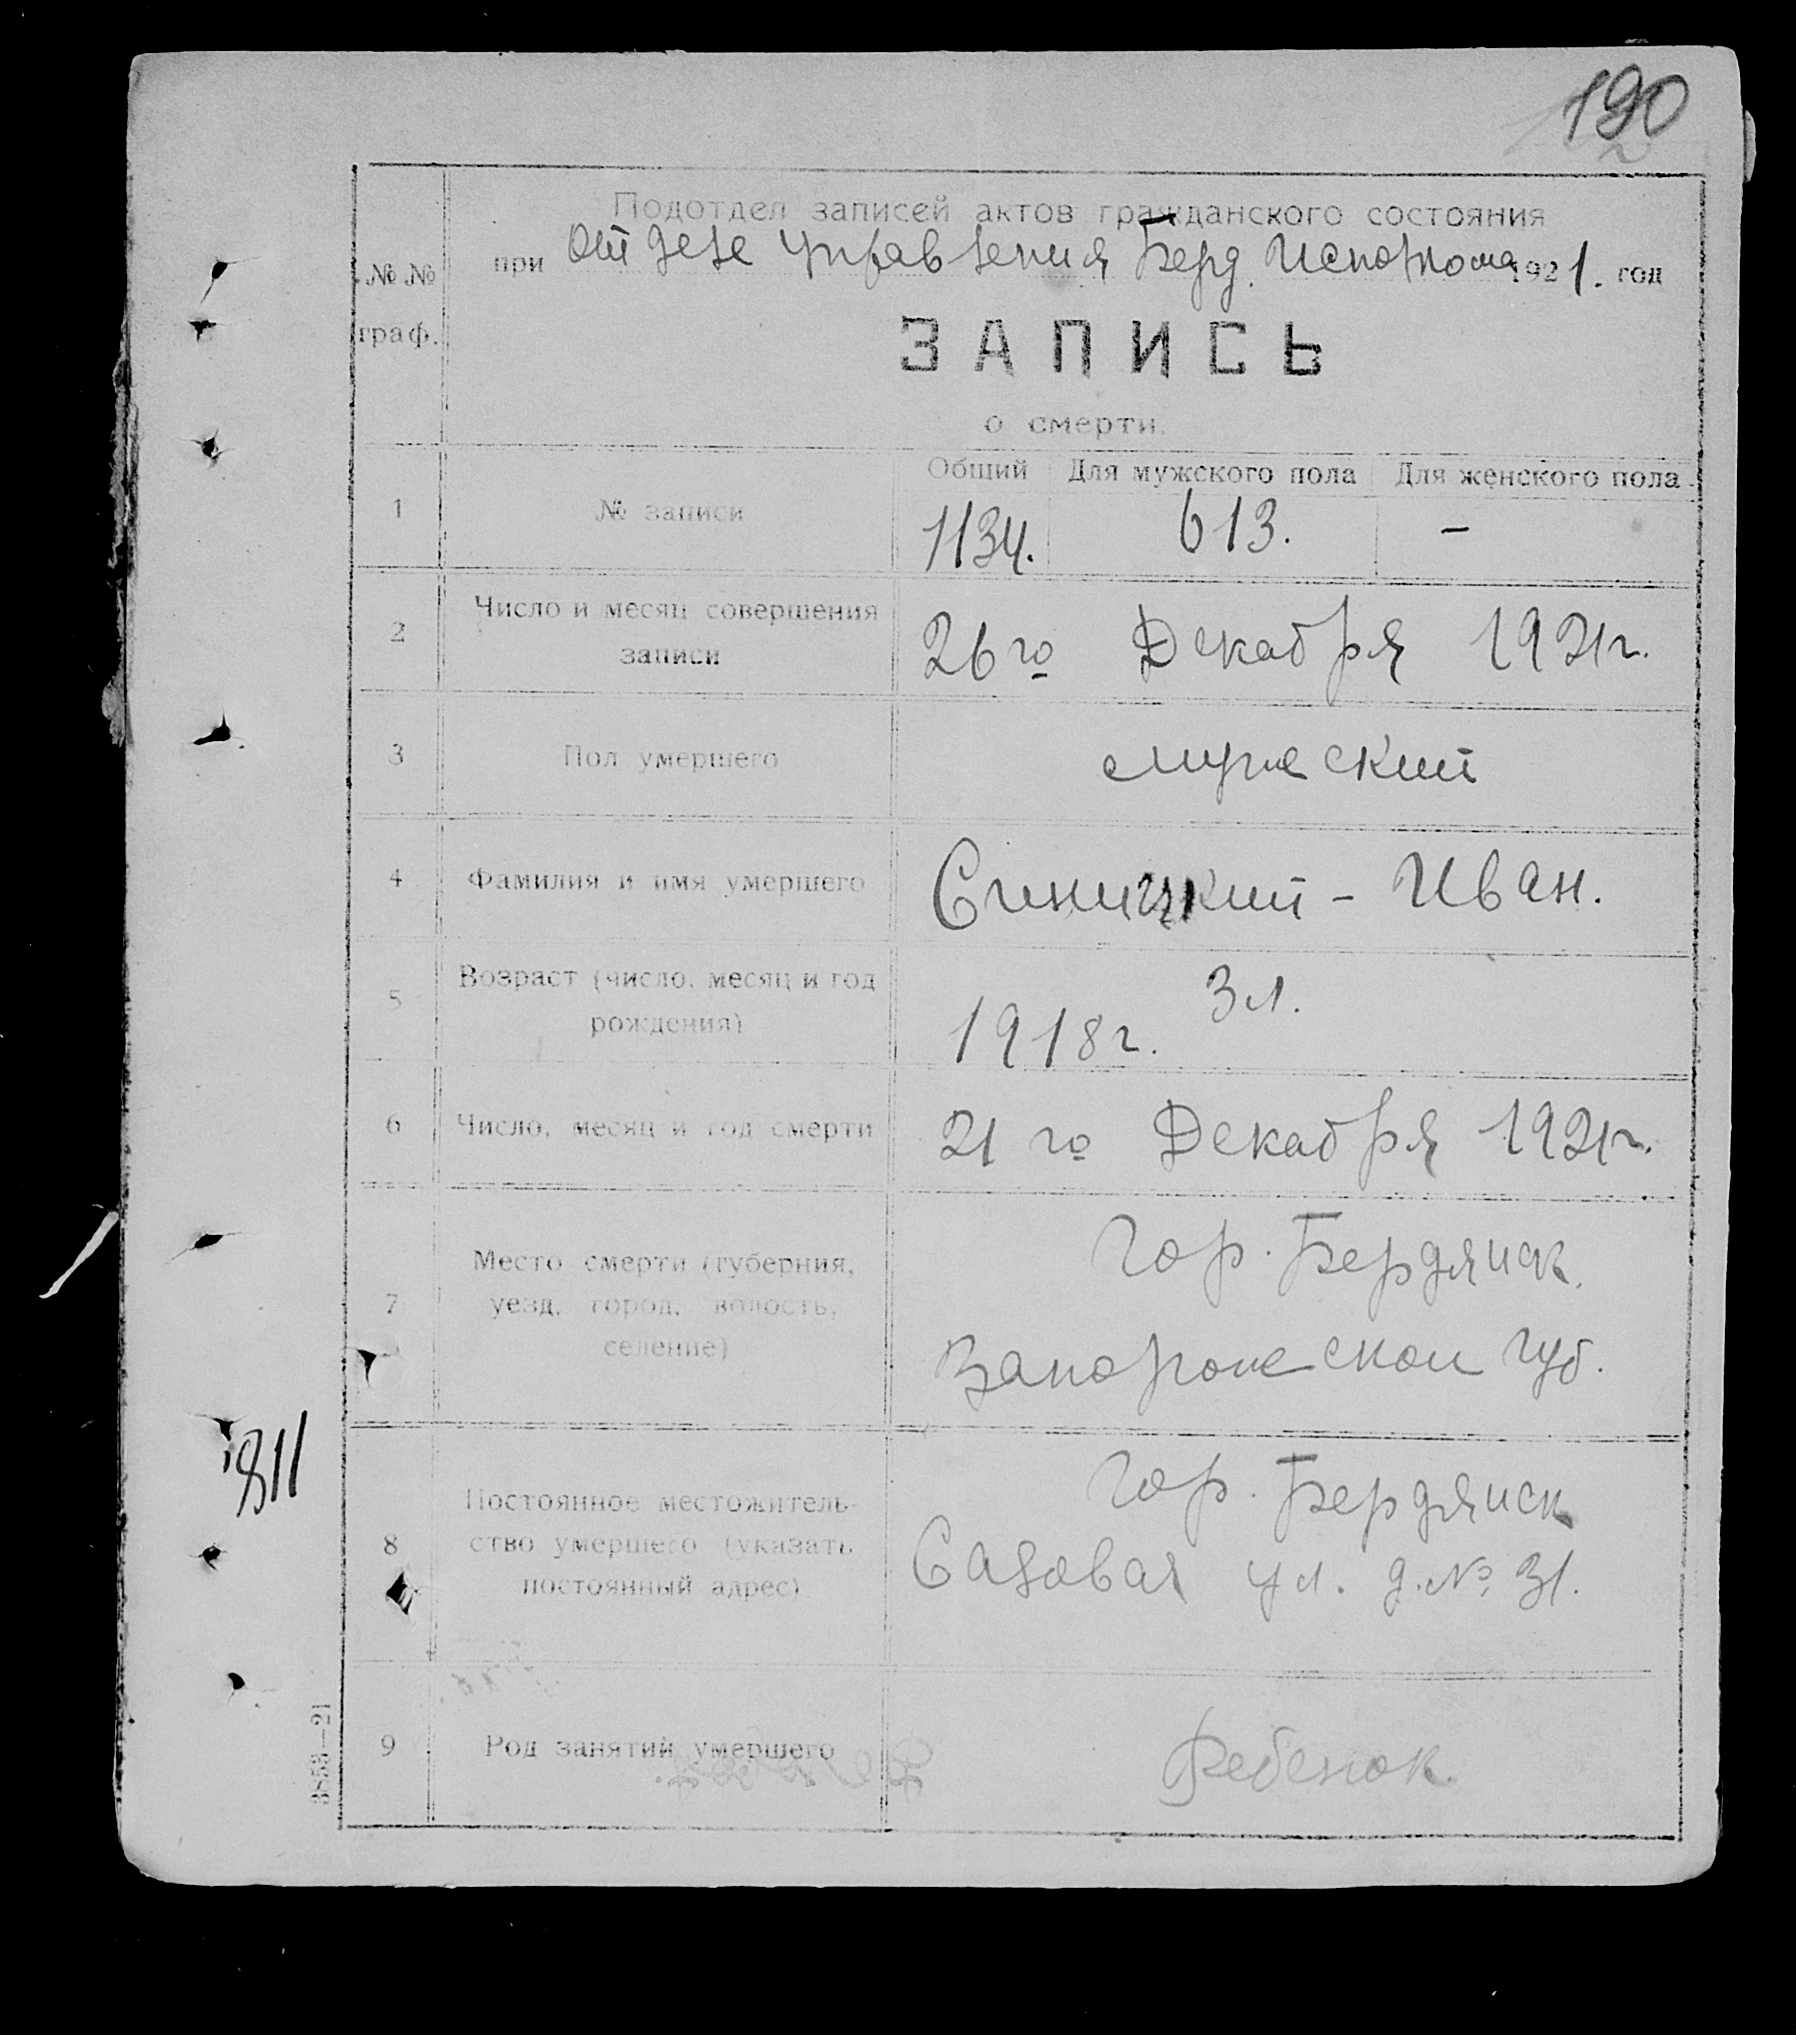 190
Подотдел записей актов гражданского состояния
при Отделе Управления Берд. Исполкома 1921. год
№ №
граф.
ЗАПИСЬ
о смерти.
Общий Для мужского пола Для женского пола
1 № записи 1134. 613. –
2 Число и месяц совершения
записи
26го Декабря 1921г.
3 Пол умершего мужеский
4 Фамилия и имя умершего Синицкий – Иван.
5 Возраст (число, месяц и год
рождения)
3 л.
1918г.
6 Число, месяц и год смерти 21го Декабря 1921г.
7 Место смерти (губерния,
уезд, город, волость,
селение)
Гор. Бердянск.
Запорожской губ.
8 Постоянное местожитель-
ство умершего (указать
постоянный адрес)
Гор. Бердянск
Садовая ул. д. № 31.
9 Род занятий умершего Ребенок.
3853—21